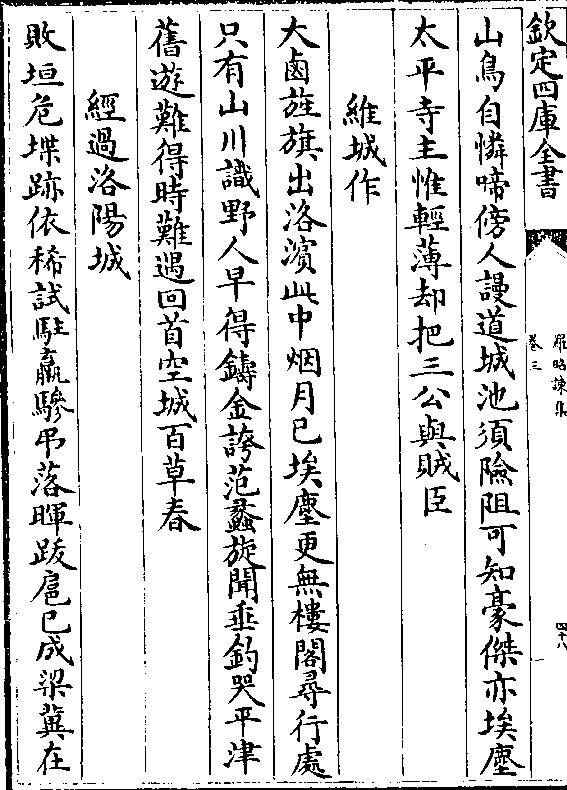 欽定四庫全書
羅昭諫集
卷三
四十八
山鳥自憐啼傍人謾道城池須險阻可知豪傑亦埃塵
太平寺主惟輕薄却把三公與賊臣
維城作
大鹵旌旗出洛濱此中烟月已埃塵更無樓閣尋行處
只有山川識野人早得鑄金誇范蠡旋聞垂釣哭平津
舊遊難得時難遇回首空城百草春
經過洛陽城
敗垣危堞跡依稀試駐羸驂弔落暉跋扈已成梁冀在